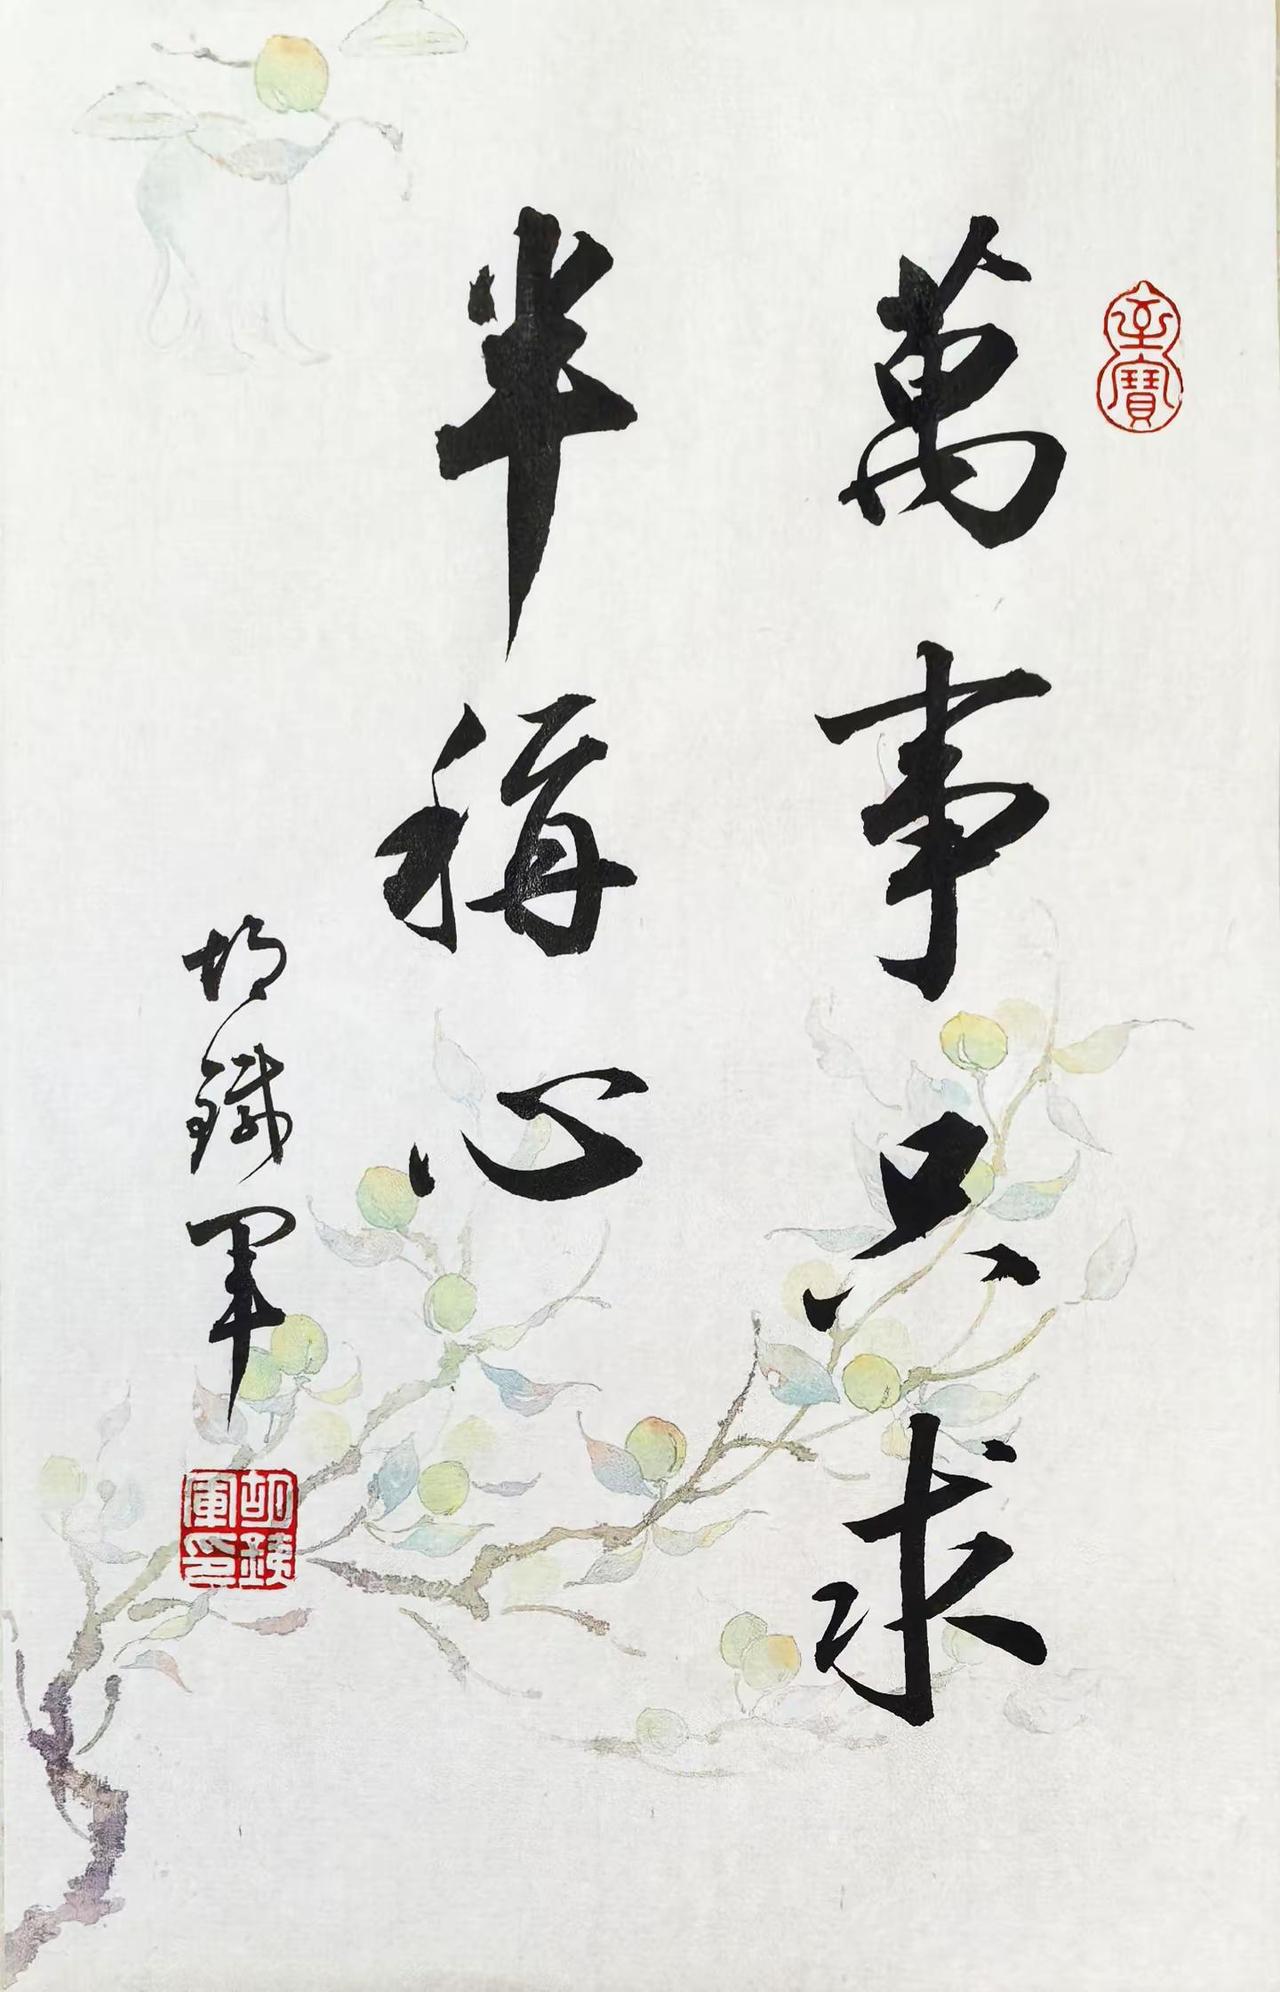 至寶
萬事只求
半稱心
胡鐵軍
胡鐵軍印